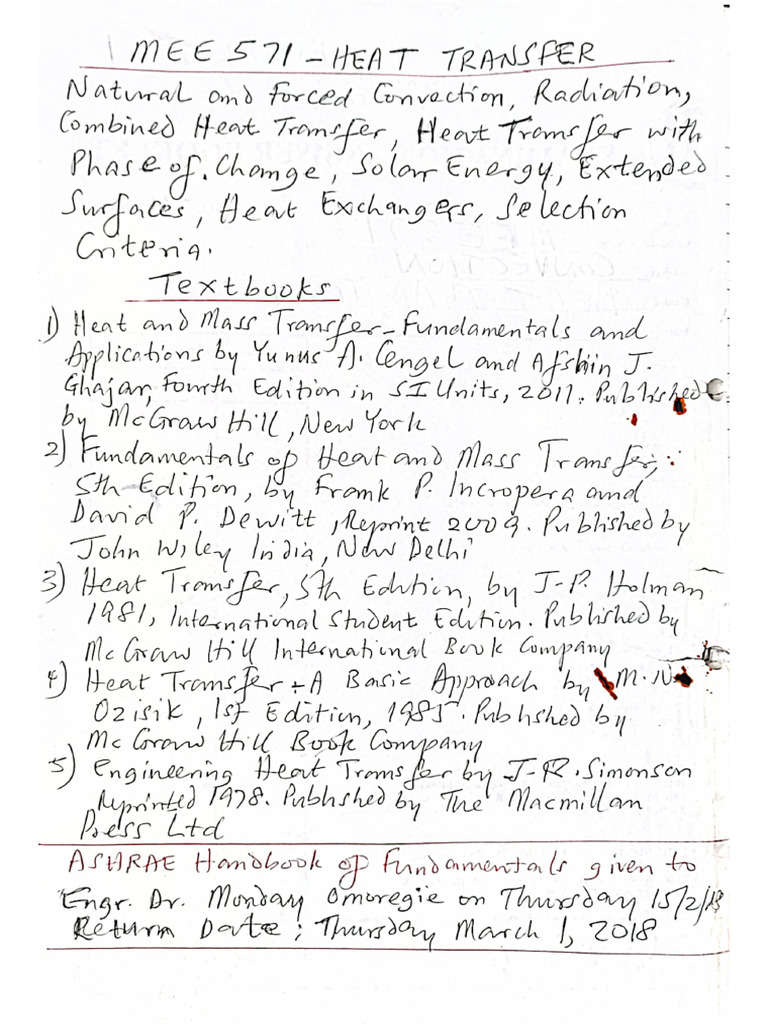 MEE 571 - HEAT TRANSFER
Natural and Forced Convection, Radiation,
Combined Heat Transfer, Heat Transfer with
Phase of. Change, Solar Energy, Extended
Surfaces, Heat Exchangers, Selection
Criteria.
Textbooks
1) Heat and Mass Transfer - Fundamentals and
Applications by Yunus A. Cengel and Afshin J.
Ghajar, Fourth Edition in SI Units, 2011. Published
by McGraw Hill, New York
2) Fundamentals of Heat and Mass Transfer,
5th Edition, by Frank P. Incropera and
David P. Dewitt, Reprint 2009. Published by
John Wiley India, New Delhi
3) Heat Transfer, 5th Edition, by J.P. Holman
1981, International Student Edition. Published by
McGraw Hill International Book Company
4) Heat Transfer - A Basic Approach by M.N.
Ozisik, 1st Edition, 1985. Published by
McGraw Hill Book Company
5) Engineering Heat Transfer by J.R. Simonson
Reprinted 1978. Published by The Macmillan
Press Ltd
ASHRAE Handbook of Fundamentals given to
Engr. Dr. Monday Omoregie on Thursday 15/2/18
Return Date: Thursday March 1, 2018